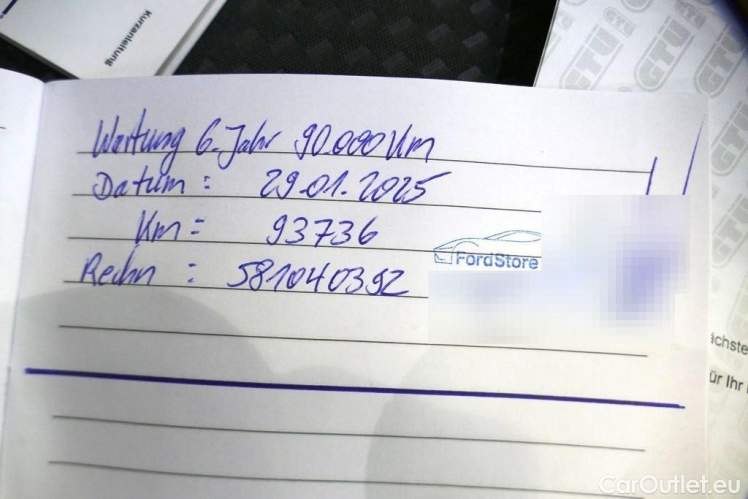 Kurzanleitung
GTÜ
Wartung 6. Jahr 90.000 Km
Datum : 29.01.2025
Km = 93736
Rechn : 581040392
FordStore
ächste
ür Ihr
CarOutlet.eu